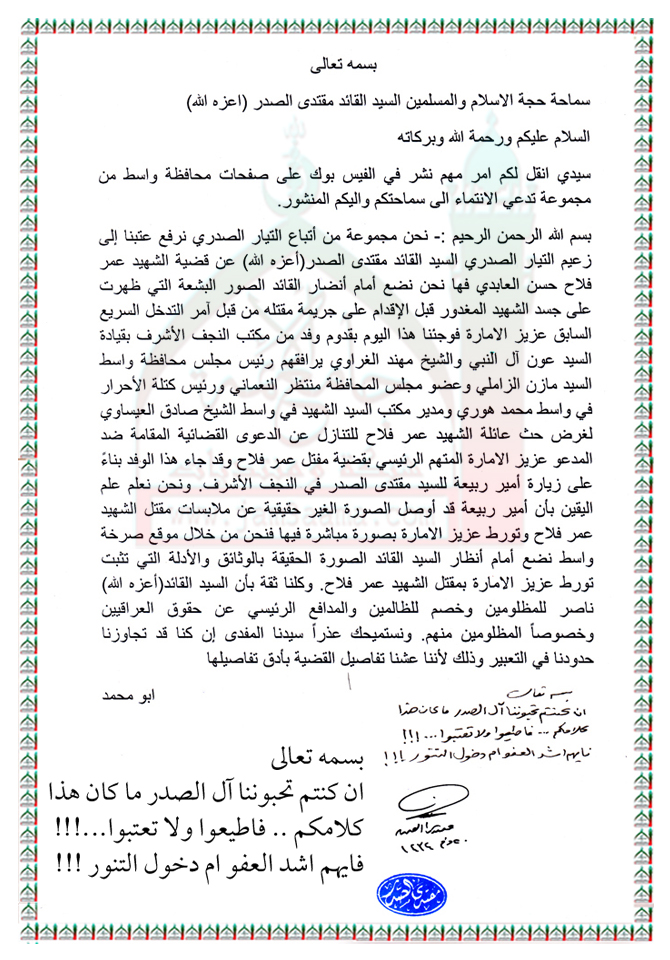 بسمه تعالى
سماحة حجة الاسلام والمسلمين السيد القائد مقتدى الصدر (اعزه الله)
السلام عليكم ورحمة الله وبركاته
سيدي انقل لكم امر مهم نشر في الفيس بوك على صفحات محافظة واسط من
مجموعة تدعي الانتماء الى سماحتكم واليكم المنشور.
بسم الله الرحمن الرحيم :- نحن مجموعة من أتباع التيار الصدري نرفع عتبنا إلى
زعيم التيار الصدري السيد القائد مقتدى الصدر(أعزه الله) عن قضية الشهيد عمر
فلاح حسن العابدي فها نحن نضع أمام أنضار القائد الصور البشعة التي ظهرت
على جسد الشهيد المغدور قبل الإقدام على جريمة مقتله من قبل آمر التدخل السريع
السابق عزيز الامارة فوجئنا هذا اليوم بقدوم وفد من مكتب النجف الأشرف بقيادة
السيد عون آل النبي والشيخ مهند الغراوي يرافقهم رئيس مجلس محافظة واسط
السيد مازن الزاملي وعضو مجلس المحافظة منتظر النعماني ورئيس كتلة الأحرار
في واسط محمد هوري ومدير مكتب السيد الشهيد في واسط الشيخ صادق العيساوي
لغرض حث عائلة الشهيد عمر فلاح للتنازل عن الدعوى القضائية المقامة ضد
المدعو عزيز الامارة المتهم الرئيسي بقضية مقتل عمر فلاح وقد جاء هذا الوفد بناءً
على زيارة أمير ربيعة للسيد مقتدى الصدر في النجف الأشرف. ونحن نعلم علم
اليقين بأن أمير ربيعة قد أوصل الصورة الغير حقيقية عن ملابسات مقتل الشهيد
عمر فلاح وتورط عزيز الامارة بصورة مباشرة فيها فنحن من خلال موقع صرخة
واسط نضع أمام أنظار السيد القائد الصورة الحقيقة بالوثائق والأدلة التي تثبت
تورط عزيز الامارة بمقتل الشهيد عمر فلاح. وكلنا ثقة بأن السيد القائد(أعزه الله)
ناصر للمظلومين وخصم للظالمين والمدافع الرئيسي عن حقوق العراقيين
وخصوصاً المظلومين منهم. ونستميحك عذراً سيدنا المفدى إن كنا قد تجاوزنا
حدودنا في التعبير وذلك لأننا عشنا تفاصيل القضية بأدق تفاصيلها
ابو محمد
بسمه تعالى
ان كنتم تحبوننا آل الصدر ما كان هذا
كلامكم .. فاطيعوا ولا تعتبوا...!!!
فايهم اشد العفو ام دخول التنور !!!
مقتدى الصدر
بسمه تعالى
ان كنتم تحبوننا آل الصدر ما كان هذا
كلامكم .. فاطيعوا ولا تعتبوا...!!!
فايهم اشد العفو ام دخول التنور !!!